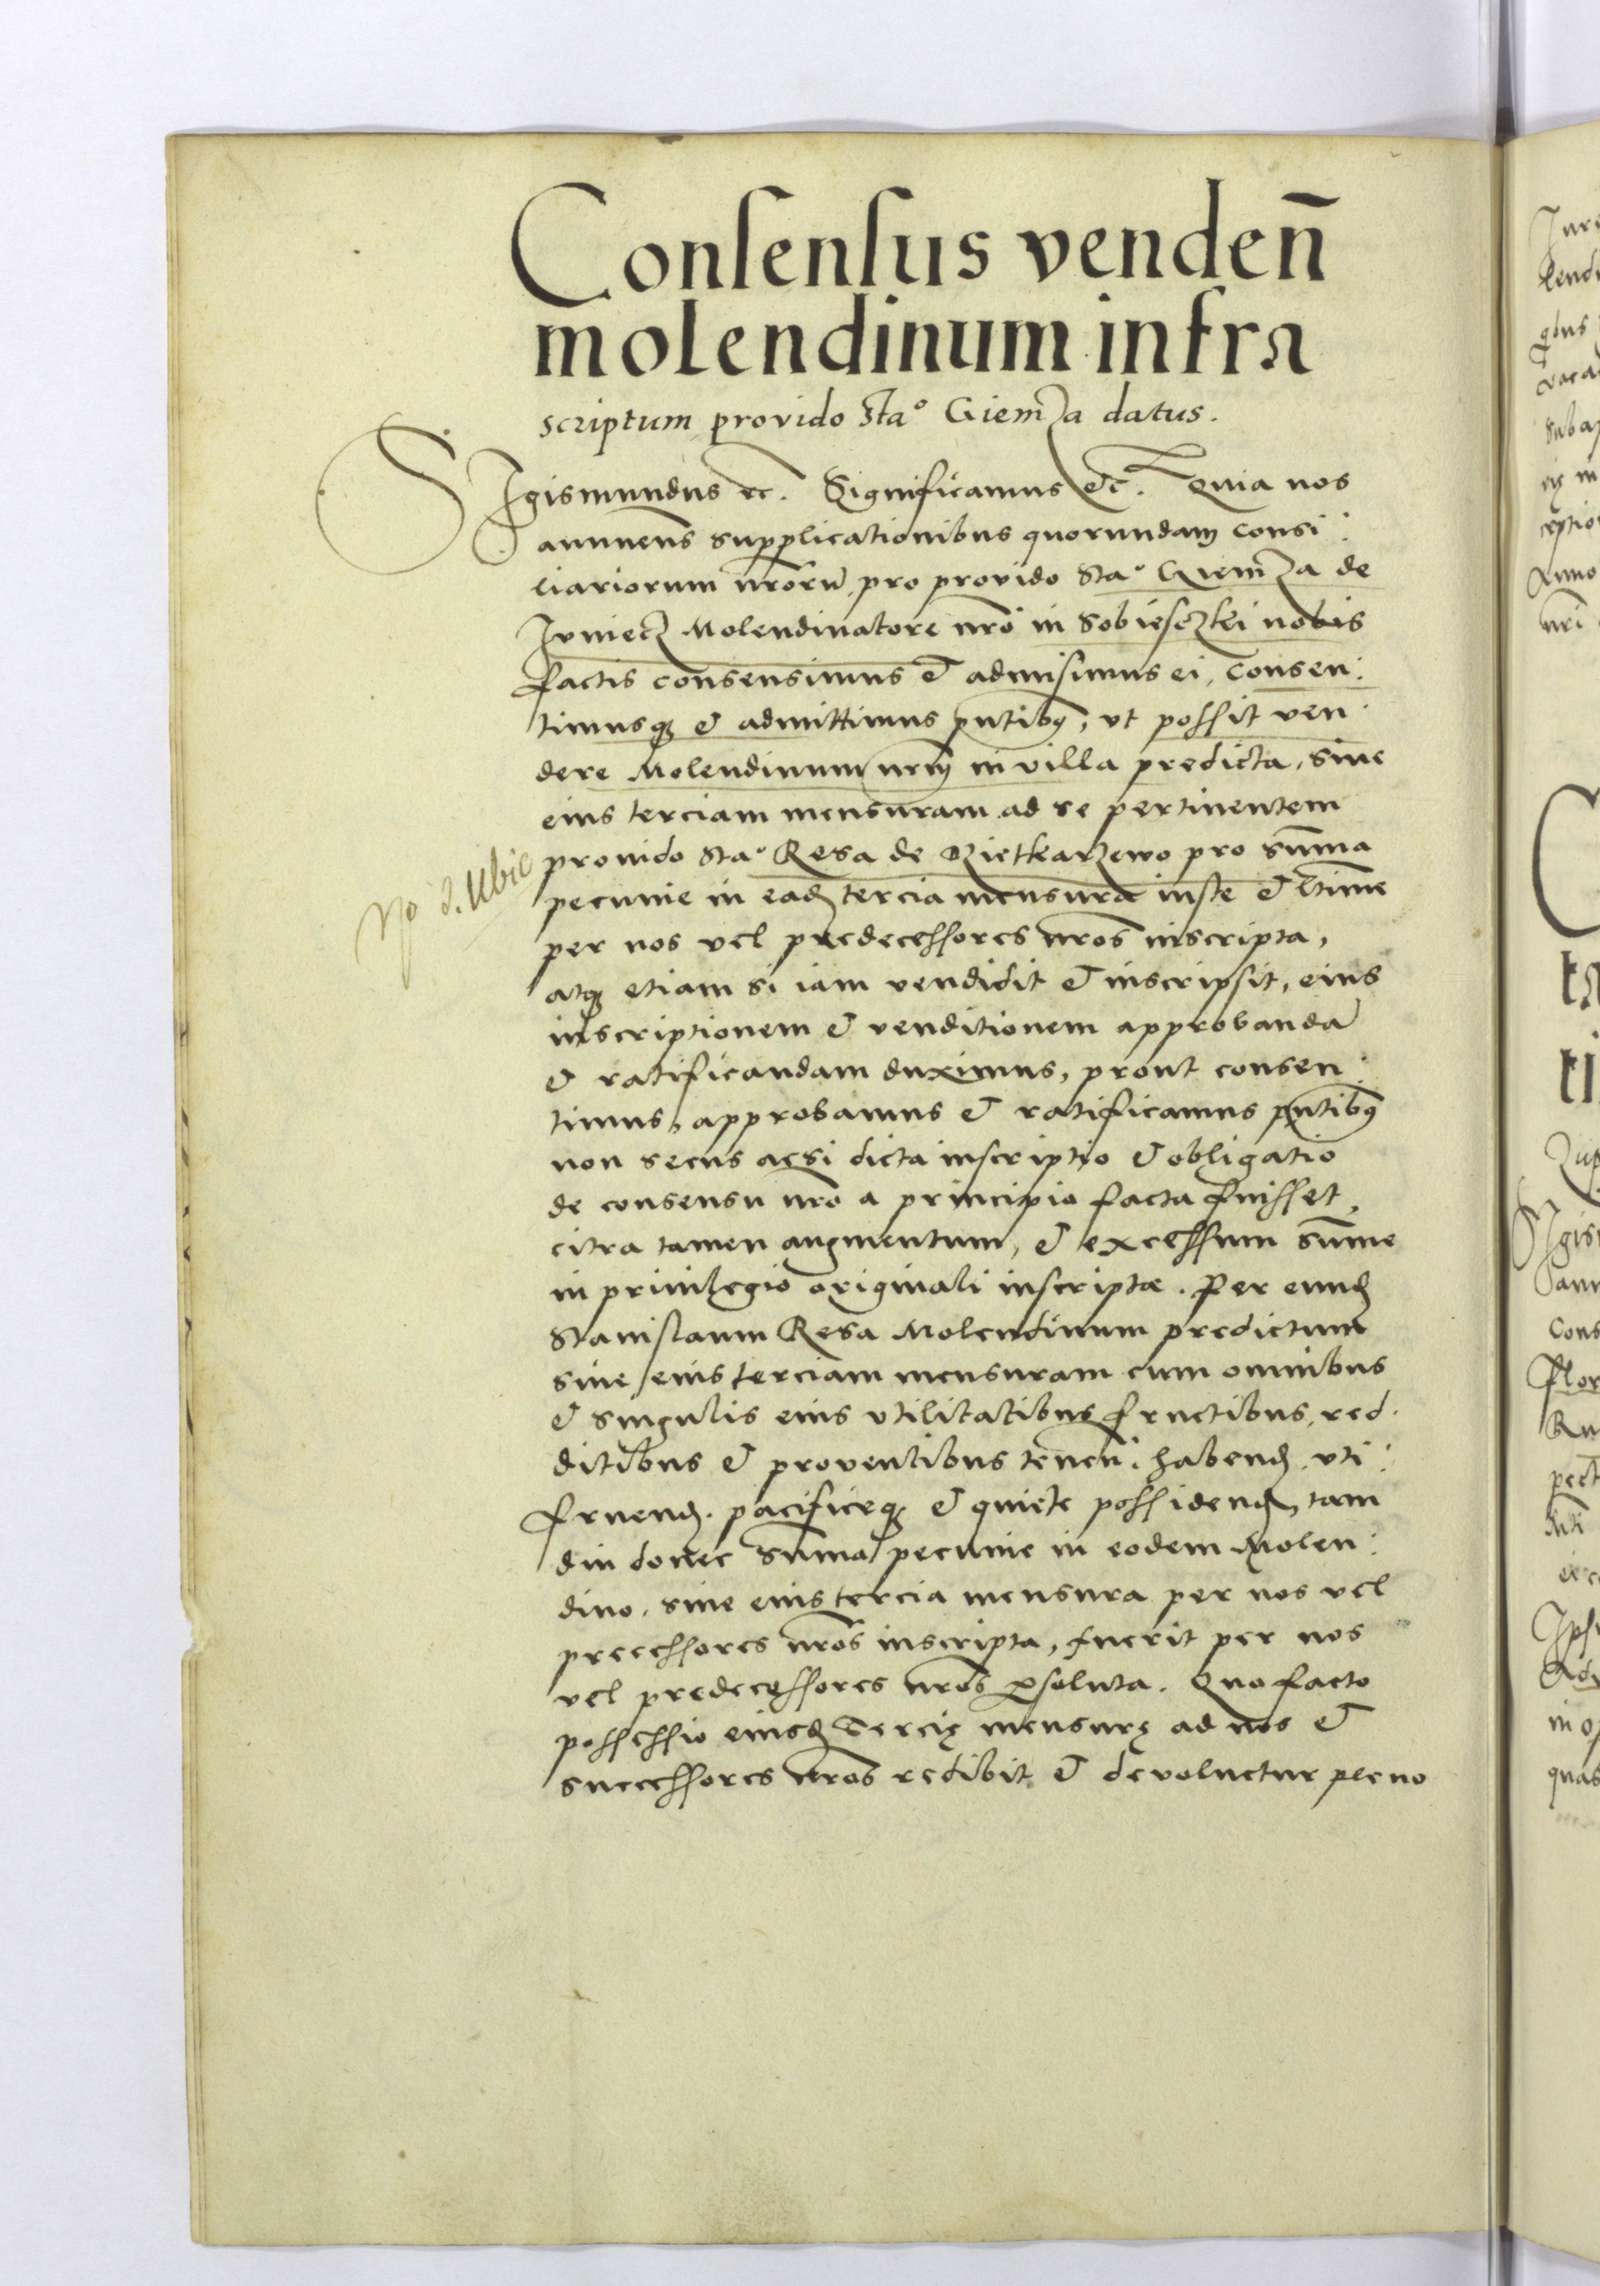 Consensus venden̄
molendinum infra
scriptum provido Sta° Giemza datus.
Sigismundus etc. Significamus etc. Quia nos
annuens supplicationibus quorundam consi:
liariorum nr̄orū pro provido Sta° Giemza de
Molendinatore nr̄o in Sobiesczki nobis
factis consensimus et admisimus ei, consen:
timusqꝫ et admittimus pn̄tibꝫ, ut possit ven:
dere Molendinum nrm̄ in villa predicta, sive
eius terciam mensuram ad se pertinentem
No d. Ubic
provido Sta° Resa de Dzietkarzewo pro sum̄a
pecunie in eadꝫ tercia mensura iuste et ltīme
per nos vel predecessores nr̄os inscripta,
atqꝫ etiam si iam vendidit et inscripsit, eius
inscriptionem et venditionem approbandā
et ratificandam duximus, prout consen:
timus, approbamus et ratificamus pn̄tibꝫ
non secus acsi dicta inscriptio et obligatio
de consensu nr̄o a principio facta fuisset,
citra tamen augmentum, et excessum sum̄e
in privilegio originali inscriptae. Per eundꝫ
Stanislaum Resa Molendinum predictum
sive eius terciam mensuram cum omnibus
et singulis eius utilitatibus fructibus, red:
ditibus et proventibus tenen̄. habendꝫ. uti:
fruendꝫ. pacificeqꝫ et quiete possidendꝫ, tam
diu donec sum̄a pecunie in eodem Molen:
dino, sive eius tercia mensura per nos vel
precessores nr̄os inscripta, fuerit per nos
vel predecessores nr̄os ꝑsoluta. Quo facto
possessio eiusdꝫ tercię mensurę ad nos et
successores nr̄os redibit et devoluetur pleno